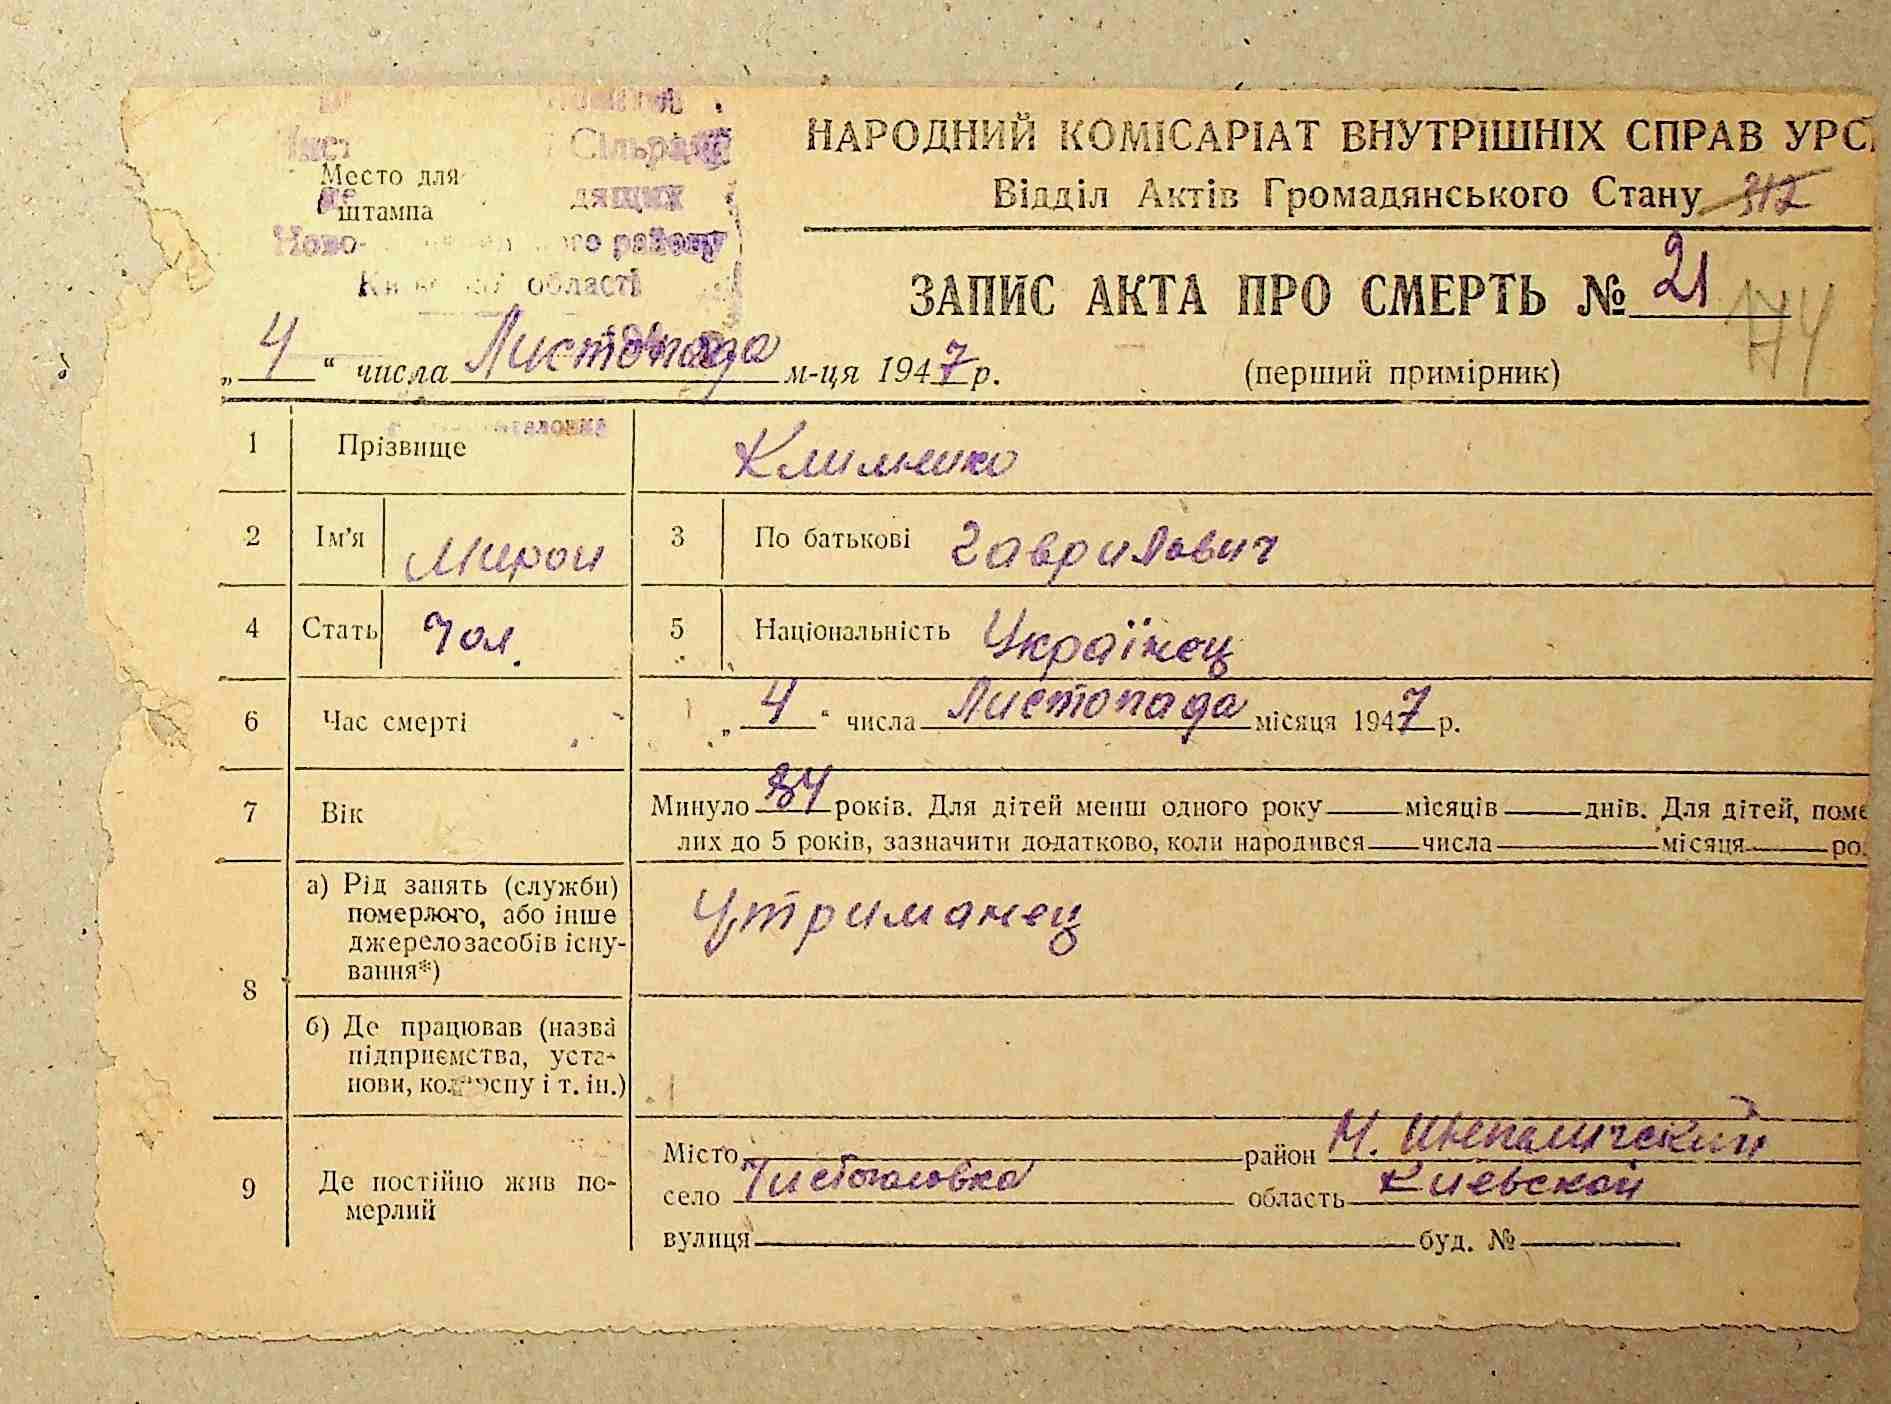 Сільрада
Место для
штампа
дящих
Ново- го району
області
НАРОДНИЙ КОМІСАРІАТ ВНУТРІШНІХ СПРАВ УРС
Відділ Актів Громадянського Стану 312
ЗАПИС АКТА ПРО СМЕРТЬ № 21
174
„ 4 “ числа Листопада м-ця 1947 р. (перший примірник)
1 Прізвище Клименко
2 Ім'я Мирон 3 По батькові Гаврилович
4 Стать Чол. 5 Національність Українец
6 Час смерті „ 4 “ числа Листопада місяця 1947 р.
7 Вік Минуло 84 років. Для дітей менш одного року місяців днів. Для дітей, поме
лих до 5 років, зазначити додатково, коли народився числа місяця ро
8 а) Рід занять (служби)
померлого, або інше
джерело засобів існу-
вання*)
Утриманец
б) Де працював (назва
підприємства, уста-
нови, колгоспу і т. ін.)
9 Де постійно жив по-
мерлий
Місто район Н. Шепеличский
село Чистогаловка область Киевской
вулиця буд. №